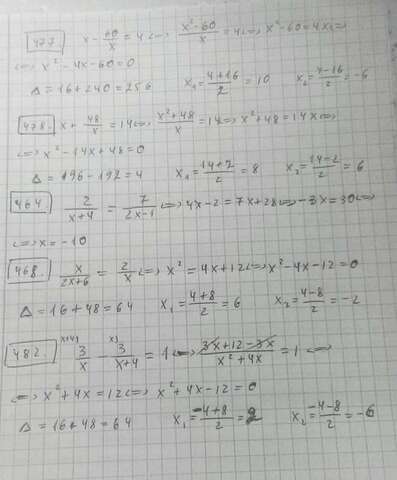 477. x - 60/x = 4 <=> x² - 60/x = 4 <=> x² - 60 = 4x <=>
<=> x² - 4x - 60 = 0
Δ = 16 + 240 = 256 x₁ = 4+16/2 = 10 x₂ = 4-16/2 = -6
478. x + 48/x = 14 <=> x²+48/x = 14 <=> x² + 48 = 14x <=>
<=> x² - 14x + 48 = 0
Δ = 196 - 192 = 4 x₁ = 14+2/2 = 8 x₂ = 14-2/2 = 6
464. 2/x+4 = 7/2x-1 <=> 4x - 2 = 7x + 28 <=> -3x = 30 <=>
<=> x = -10
468. x/2x+6 = 2/x <=> x² = 4x + 12 <=> x² - 4x - 12 = 0
Δ = 16 + 48 = 64 x₁ = 4+8/2 = 6 x₂ = 4-8/2 = -2
482. x+4) 3/x - x) 3/x+4 = 1 <=> 3x+12-3x/x²+4x = 1 <=>
<=> x² + 4x = 12 <=> x² + 4x - 12 = 0
Δ = 16 + 48 = 64 x₁ = -4+8/2 = 2 x₂ = -4-8/2 = -6